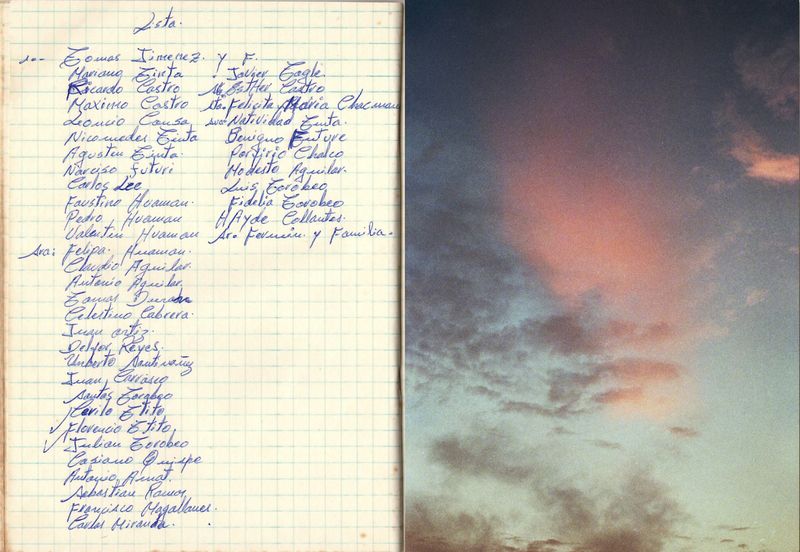 Lista.
Tomas Jimenez. y F.
Mariano Tinta
Ricardo Castro
Maximo Castro
Leoncio Causa
Nicomedes Tinta
Agustin Tinta.
Narciso futuri
Carlos Lee
Faustino Huaman.
Pedro Huaman
Valentin Huaman
Sra: Felipa. Huaman.
Claudio Aguilar.
Antonio Aguilar.
Tomas
Celestino Cabrera.
Juan ortiz.
Reyes.
Unberto
Juan Carrasco
Santos Torobeo
Tito
Florencio Tito
Julian Torobeo
Casiano Quispe
Antonio Amat.
Sebastian Ramos
Francisco Magallanes.
Carlos Miranda.
Javier Tagle
Esther Castro
Felicita Maria Chacman
Natividad Tinta.
Benigno
Porfirio Chalco
Modesto Aguilar.
Luis Torobeo
Fidelia Torobeo
HAyde Collantes.
Sr. Fermin. y Familia.